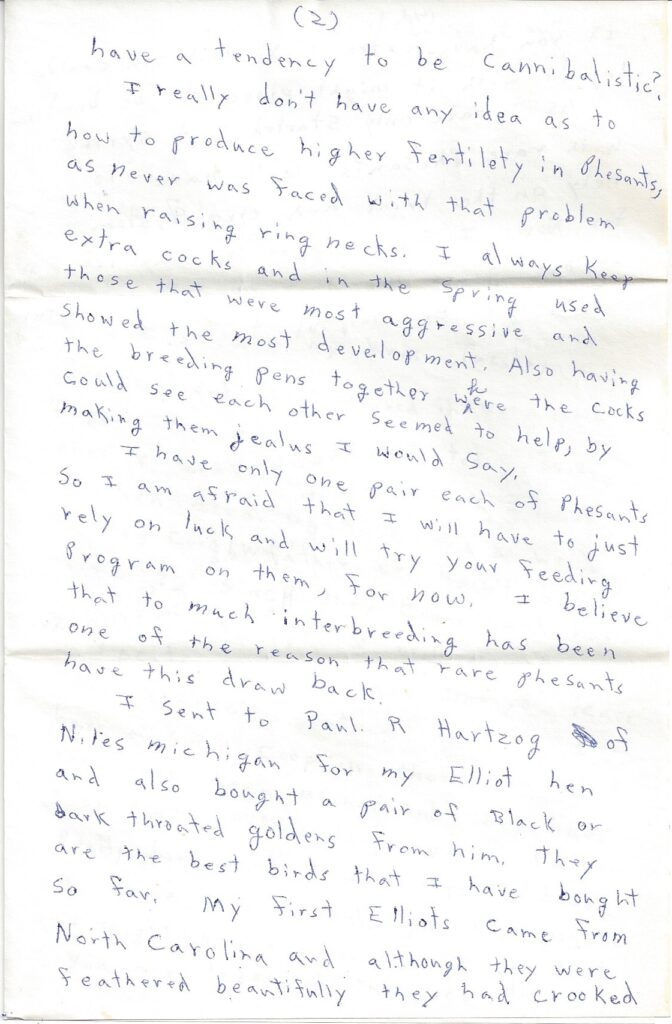 (2)
have a tendency to be cannibalistic?
I really don't have any idea as to
how to produce higher fertilety in Phesants,
as never was faced with that problem
when raising ring necks. I always keep
extra cocks and in the spring used
those that were most aggressive and
showed the most development. Also having
the breeding pens together where the cocks
could see each other seemed to help, by
making them jealus I would say.
I have only one pair each of Phesants
so I am afraid that I will have to just
rely on luck and will try your feeding
Program on them, for now. I believe
that to much interbreeding has been
one of the reason that rare phesants
have this draw back.
I sent to Paul. R Hartzog of
Niles michigan for my Elliot hen
and also bought a pair of Black or
dark throated goldens from him. They
are the best birds that I have bought
so far. My first Elliots came from
North Carolina and although they were
feathered beautifully they had crooked